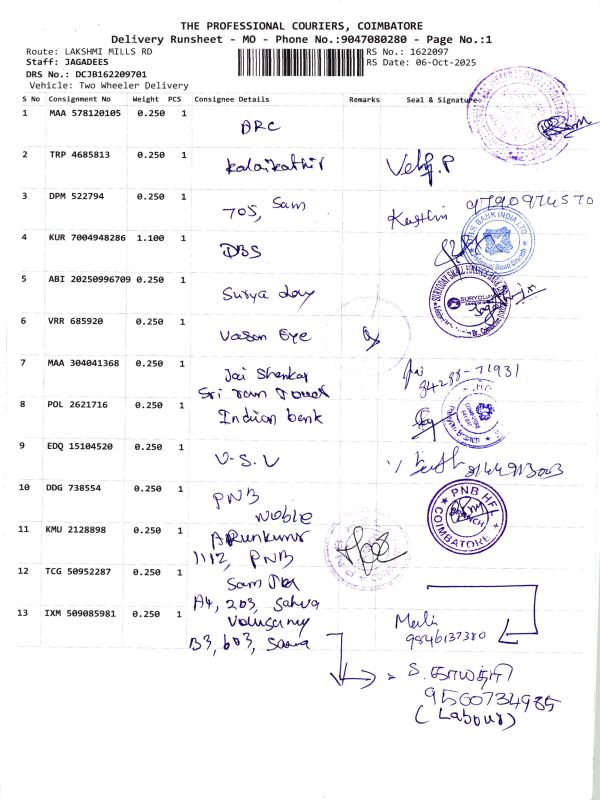 THE PROFESSIONAL COURIERS, COIMBATORE
Delivery Runsheet - MO - Phone No.:9047080280 - Page No.:1
Route: LAKSHMI MILLS RD
RS No.: 1622097
Staff: JAGADEES
RS Date: 06-Oct-2025
DRS No.: DCJB162209701
Vehicle: Two Wheeler Delivery
S No Consignment No Weight PCS Consignee Details Remarks Seal & Signature
1 MAA 578120105 0.250 1 ARC
2 TRP 4685813 0.250 1 Kalaikathir
3 DPM 522794 0.250 1 705, Sam Karthi 9790974570
4 KUR 7004948286 1.100 1 DBS
DBS BANK INDIA LTD
5 ABI 20250996709 0.250 1 Surya day
6 VRR 685920 0.250 1 Vasan Eye
7 MAA 304041368 0.250 1 Jai Shankar
Sri ram Tower
8 POL 2621716 0.250 1 Indian bank
9 EDQ 15104520 0.250 1 V-S-V
10 DDG 738554 0.250 1 PNB
Noble
PNB HFL
BRANCH
COIMBATORE
11 KMU 2128898 0.250 1 Arunkumar
1112, PNB
12 TCG 50952287 0.250 1
A4, 203, Sahva
13 IXM 509085981 0.250 1
B3, 603,
9846137380
9560734985
(Labour)